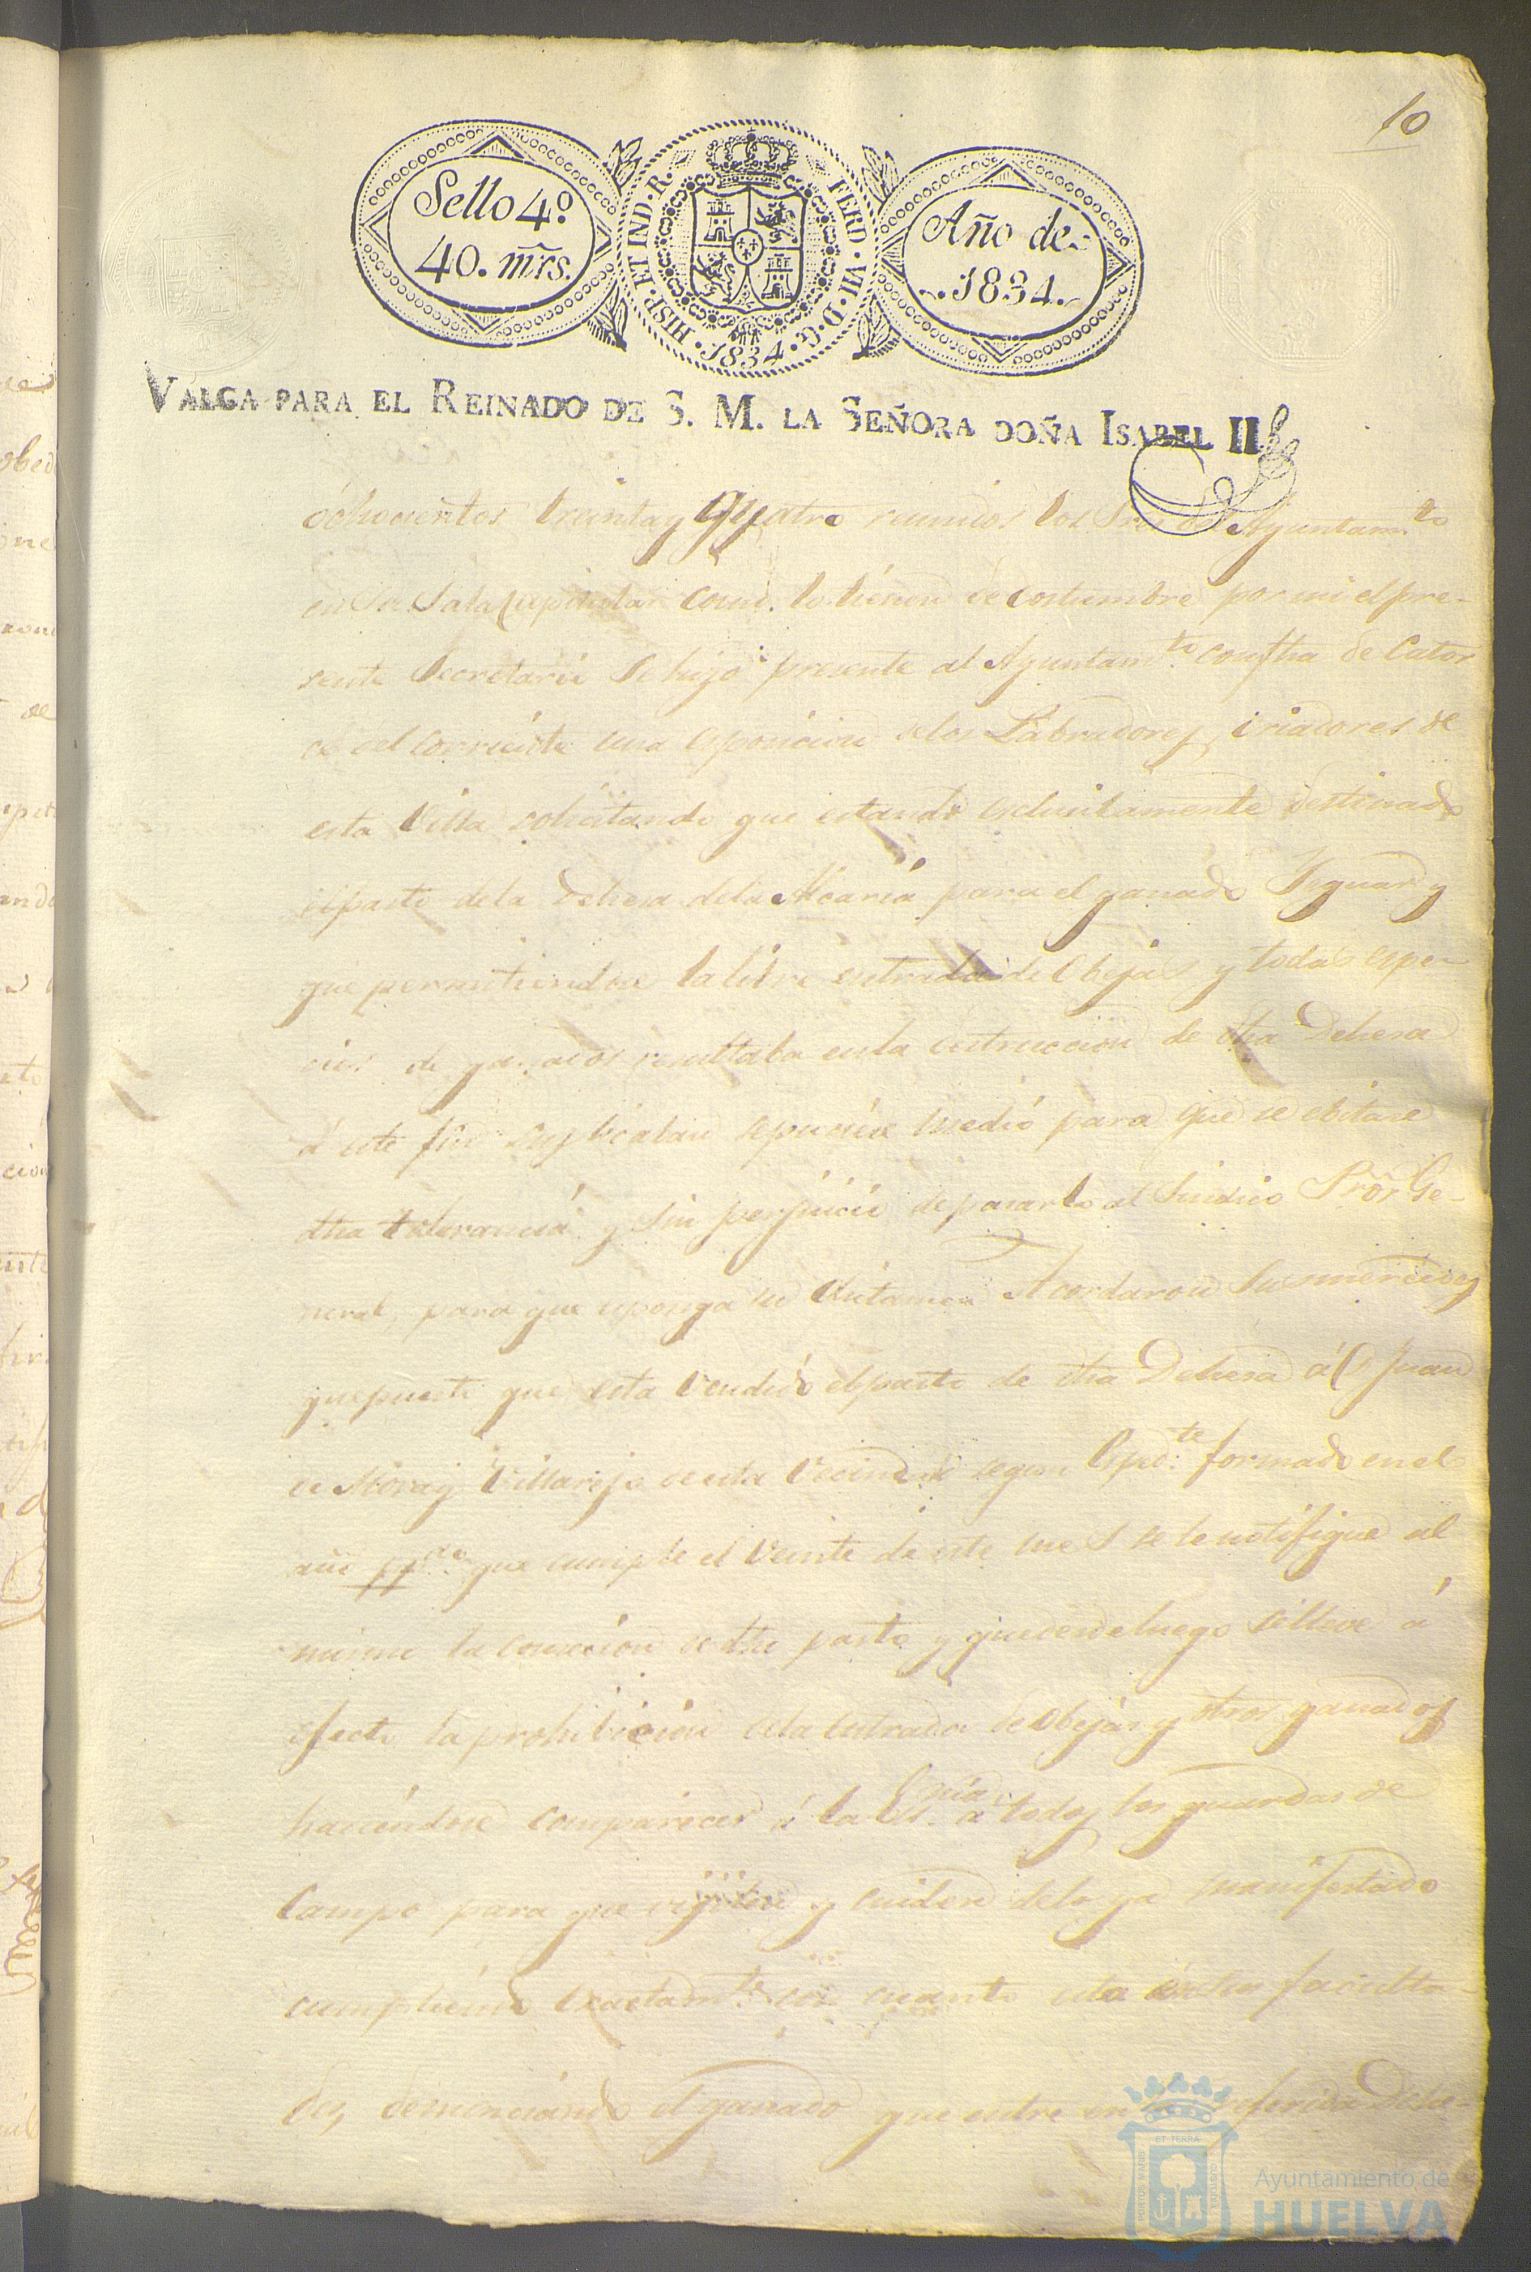 10
Sello 4º
40. mrs.
HISP. ET IND. R. FERD. VII. D. G. 1834.
Año de
1834.
VALGA PARA EL REINADO DE S. M. LA SEÑORA DOÑA ISABEL II
ochocientos treinta y quatro reunidos los Sres del Ayuntamto
en la Sala Capitular como lo tienen de costumbre por mi el pre-
sente Secretario se hizo presente al Ayuntamto con fha de Cator
ce del corriente una esposicion de los Labradores, criadores de
esta Villa solicitando que estando esclusibamente destinado
el pasto de la Dehesa de la Alcaria para el ganado Yeguar y
que permitiendose la libre entrada de Obejas y todas espe-
cies de ganados resultaba en la destruccion de dha Dehesa
á este fin suplicaban se pusiese medio para que se ebitase
dha tolerancia y sin perjuicio de pasarlo al Sindico Pror Ge-
neral, para que esponga su dictamen Acordaron sus mercedes
que puesto que esta vendido el pasto de dha Dehesa á Dn Juan
de Mora y Villarejo de esta Vecindad segun Espdte formado en el
año ppdo que cumple el veinte de este mes se le notifique al
mismo la conclusion de dho pasto y que desde luego se lleve á
efecto la prohibicion de la entrada de obejas y otros ganados
haciendose comparecer á la Esnia a todos los guardas de
Campo para que vijilen y cuiden de lo ya manifestado
cumpliendo exactamte con cuanto esta en sus faculta-
des, denunciando el ganado que entre en la referida Dehe-
ET TERRA
PORTUS MARIS
CUSTODIA
Ayuntamiento de
HUELVA